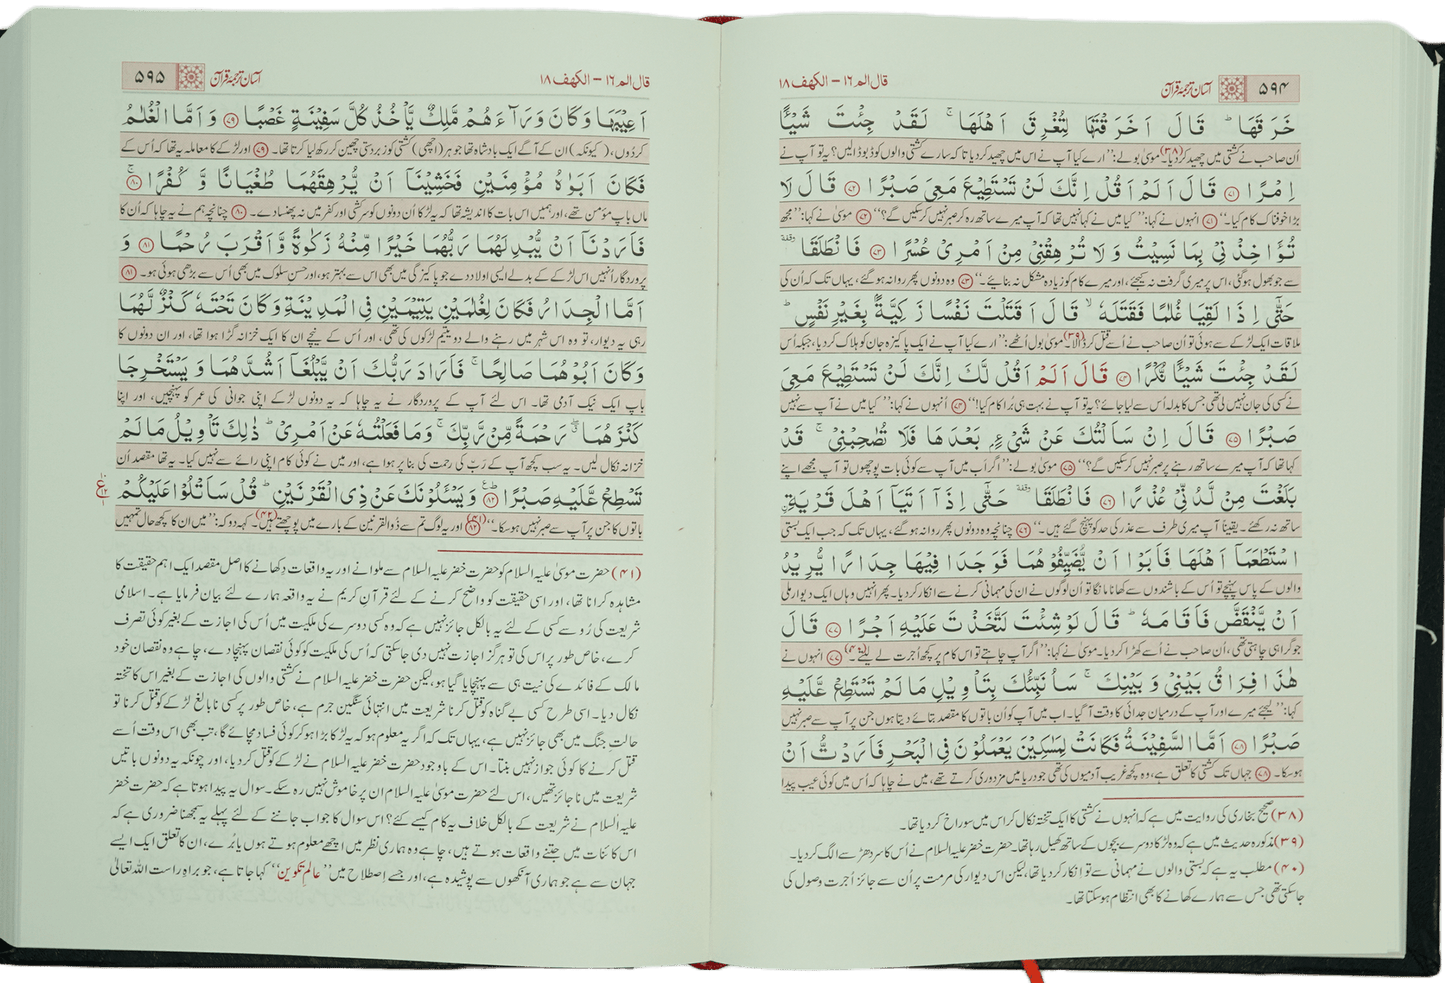 ۵۹۴ آسان ترجمۂ قرآن قال الم ۱۶ – الکھف ۱۸
خَرَقَهَا ؕ قَالَ اَخَرَقْتَهَا لِتُغْرِقَ اَهْلَهَا ۚ لَقَدْ جِئْتَ شَيْـًٔا
اُن صاحب نے کشتی میں چھید کردیا۔(۳۸) موسیٰ بولے: ’’ارے کیا آپ نے اس میں چھید کردیا تاکہ سارے کشتی والوں کو ڈبو ڈالیں؟ یہ تو آپ نے
اِمْرًا ۝۷۱ قَالَ اَلَمْ اَقُلْ اِنَّكَ لَنْ تَسْتَطِيْعَ مَعِيَ صَبْرًا ۝۷۲ قَالَ لَا
بڑا خوفناک کام کیا۔‘‘ ۝۷۱ انہوں نے کہا: ’’کیا میں نے کہا نہیں تھا کہ آپ میرے ساتھ رہ کر صبر نہیں کر سکیں گے؟‘‘ ۝۷۲ موسیٰ نے کہا: ’’مجھ
تُؤَاخِذْنِيْ بِمَا نَسِيْتُ وَ لَا تُرْهِقْنِيْ مِنْ اَمْرِيْ عُسْرًا ۝۷۳ فَانْطَلَقَا ٝ
سے جو بھول ہوگئی، اس پر میری گرفت نہ کیجئے، اور میرے کام کو زیادہ مشکل نہ بنائیے۔‘‘ ۝۷۳ وہ دونوں پھر روانہ ہوگئے، یہاں تک کہ اُن کی
حَتّٰۤى اِذَا لَقِيَا غُلٰمًا فَقَتَلَهٗ ۙ قَالَ اَقَتَلْتَ نَفْسًا زَكِيَّةًۢ بِغَيْرِ نَفْسٍ ؕ
ملاقات ایک لڑکے سے ہوئی تو اُن صاحب نے اُسے قتل کرڈالا۔(۳۹) موسیٰ بول اُٹھے: ’’ارے کیا آپ نے ایک پاکیزہ جان کو ہلاک کردیا، جبکہ اُس
لَقَدْ جِئْتَ شَيْـًٔا نُّكْرًا ۝۷۴ قَالَ اَلَمْ اَقُلْ لَّكَ اِنَّكَ لَنْ تَسْتَطِيْعَ مَعِيَ
نے کسی کی جان نہیں لی تھی جس کا بدلہ اُس سے لیا جائے؟ یہ تو آپ نے بہت ہی بُرا کام کیا!‘‘ ۝۷۴ اُنہوں نے کہا: ’’کیا میں نے آپ سے نہیں
صَبْرًا ۝۷۵ قَالَ اِنْ سَاَلْتُكَ عَنْ شَيْءٍۭ بَعْدَهَا فَلَا تُصٰحِبْنِيْ ۚ قَدْ
کہا تھا کہ آپ میرے ساتھ رہنے پر صبر نہیں کرسکیں گے؟‘‘ ۝۷۵ موسیٰ بولے: ’’اگر اَب میں آپ سے کوئی بات پوچھوں تو آپ مجھے اپنے
بَلَغْتَ مِنْ لَّدُنِّيْ عُذْرًا ۝۷۶ فَانْطَلَقَا ٝ حَتّٰۤى اِذَاۤ اَتَيَاۤ اَهْلَ قَرْيَةِۨ
ساتھ نہ رکھئے۔ یقیناً آپ میری طرف سے عذر کی حد کو پہنچ گئے ہیں۔‘‘ ۝۷۶ چنانچہ وہ دونوں پھر روانہ ہوگئے، یہاں تک کہ جب ایک بستی
اسْتَطْعَمَاۤ اَهْلَهَا فَاَبَوْا اَنْ يُّضَيِّفُوْهُمَا فَوَجَدَا فِيْهَا جِدَارًا يُّرِيْدُ
والوں کے پاس پہنچے تو اُس کے باشندوں سے کھانا مانگا تو اُن لوگوں نے ان کی مہمانی کرنے سے انکار کردیا۔ پھر انہیں وہاں ایک دیوار ملی
اَنْ يَّنْقَضَّ فَاَقَامَهٗ ؕ قَالَ لَوْ شِئْتَ لَتَّخَذْتَ عَلَيْهِ اَجْرًا ۝۷۷ قَالَ
جو گرا ہی چاہتی تھی، اُن صاحب نے اُسے کھڑا کردیا۔ موسیٰ نے کہا: ’’اگر آپ چاہتے تو اس کام پر کچھ اُجرت لے لیتے۔‘‘(۴۰) ۝۷۷ انہوں نے
هٰذَا فِرَاقُ بَيْنِيْ وَ بَيْنِكَ ۚ سَاُنَبِّئُكَ بِتَاْوِيْلِ مَا لَمْ تَسْتَطِعْ عَّلَيْهِ
کہا: ’’لیجئے میرے اور آپ کے درمیان جدائی کا وقت آگیا۔ اب میں آپ کو اُن باتوں کا مقصد بتائے دیتا ہوں جن پر آپ سے صبر نہیں
صَبْرًا ۝۷۸ اَمَّا السَّفِيْنَةُ فَكَانَتْ لِمَسٰكِيْنَ يَعْمَلُوْنَ فِي الْبَحْرِ فَاَرَدْتُّ اَنْ
ہوسکا۔ ۝۷۸ جہاں تک کشتی کا تعلق ہے، وہ کچھ غریب آدمیوں کی تھی جو دریا میں مزدوری کرتے تھے، میں نے چاہا کہ اُس میں کوئی عیب پیدا
(۳۸) صحیح بخاری کی روایت میں ہے کہ انہوں نے کشتی کا ایک تختہ نکال کر اس میں سوراخ کردیا تھا۔
(۳۹) مذکورہ حدیث میں ہے کہ وہ لڑکا دوسرے بچوں کے ساتھ کھیل رہا تھا۔ حضرت خضر علیہ السلام نے اُس کا سر دھڑ سے الگ کردیا۔
(۴۰) مطلب یہ ہے کہ بستی والوں نے مہمانی سے تو انکار کردیا تھا، لیکن اس دیوار کی مرمت پر اُن سے جائز اُجرت وصول کی
جاسکتی تھی جس سے ہمارے کھانے کا بھی انتظام ہوسکتا تھا۔
قال الم ۱۶ – الکھف ۱۸ آسان ترجمۂ قرآن ۵۹۵
اَعِيْبَهَا وَ كَانَ وَرَآءَهُمْ مَّلِكٌ يَّاْخُذُ كُلَّ سَفِيْنَةٍ غَصْبًا ۝۷۹ وَ اَمَّا الْغُلٰمُ
کردُوں، (کیونکہ) ان کے آگے ایک بادشاہ تھا جو ہر (اچھی) کشتی کو زبردستی چھین کر رکھ لیا کرتا تھا۔ ۝۷۹ اور لڑکے کا معاملہ یہ تھا کہ اُس کے
فَكَانَ اَبَوٰهُ مُؤْمِنَيْنِ فَخَشِيْنَاۤ اَنْ يُّرْهِقَهُمَا طُغْيَانًا وَّ كُفْرًا ۝۸۰ ۚ
ماں باپ مؤمن تھے، اور ہمیں اس بات کا اندیشہ تھا کہ یہ لڑکا اُن دونوں کو سرکشی اور کفر میں نہ پھنسا دے۔ ۝۸۰ چنانچہ ہم نے یہ چاہا کہ اُن کا
فَاَرَدْنَاۤ اَنْ يُّبْدِلَهُمَا رَبُّهُمَا خَيْرًا مِّنْهُ زَكٰوةً وَّ اَقْرَبَ رُحْمًا ۝۸۱ وَ
پروردگار اُنہیں اس لڑکے کے بدلے ایسی اولاد دے جو پاکیزگی میں بھی اس سے بہتر ہو، اور حسنِ سلوک میں بھی اُس سے بڑھی ہوئی ہو۔ ۝۸۱
اَمَّا الْجِدَارُ فَكَانَ لِغُلٰمَيْنِ يَتِيْمَيْنِ فِي الْمَدِيْنَةِ وَ كَانَ تَحْتَهٗ كَنْزٌ لَّهُمَا
رہی یہ دیوار، تو وہ اس شہر میں رہنے والے دو یتیم لڑکوں کی تھی، اور اُس کے نیچے ان کا ایک خزانہ گڑا ہوا تھا، اور ان دونوں کا
وَ كَانَ اَبُوْهُمَا صَالِحًا ۚ فَاَرَادَ رَبُّكَ اَنْ يَّبْلُغَاۤ اَشُدَّهُمَا وَ يَسْتَخْرِجَا
باپ ایک نیک آدمی تھا۔ اس لئے آپ کے پروردگار نے یہ چاہا کہ یہ دونوں لڑکے اپنی جوانی کی عمر کو پہنچیں، اور اپنا
كَنْزَهُمَا ۖ رَحْمَةً مِّنْ رَّبِّكَ ۚ وَ مَا فَعَلْتُهٗ عَنْ اَمْرِيْ ؕ ذٰلِكَ تَاْوِيْلُ مَا لَمْ
خزانہ نکال لیں۔ یہ سب کچھ آپ کے رَبّ کی رحمت کی بنا پر ہوا ہے، اور میں نے کوئی کام اپنی رائے سے نہیں کیا۔ یہ تھا مقصد اُن
تَسْطِعْ عَّلَيْهِ صَبْرًا ۝۸۲ ؕ وَ يَسْـَٔلُوْنَكَ عَنْ ذِي الْقَرْنَيْنِ ؕ قُلْ سَاَتْلُوْا عَلَيْكُمْ
باتوں کا جن پر آپ سے صبر نہیں ہوسکا۔‘‘(۴۱) ۝۸۲ اور یہ لوگ تم سے ذُوالقرنین کے بارے میں پوچھتے ہیں۔(۴۲) کہہ دو کہ: ’’میں ان کا کچھ حال تمہیں
(۴۱) حضرت موسیٰ علیہ السلام کو حضرت خضر علیہ السلام سے ملوانے اور یہ واقعات دِکھانے کا اصل مقصد ایک اہم حقیقت کا
مشاہدہ کرانا تھا، اور اسی حقیقت کو واضح کرنے کے لئے قرآنِ کریم نے یہ واقعہ ہمارے لئے بیان فرمایا ہے۔ اسلامی
شریعت کی رُو سے کسی کے لئے یہ بالکل جائز نہیں ہے کہ وہ کسی دوسرے کی ملکیت میں اُس کی اجازت کے بغیر کوئی تصرف
کرے، خاص طور پر اس کی تو ہرگز اجازت نہیں دی جاسکتی کہ اُس کی ملکیت کو کوئی نقصان پہنچا دے، چاہے وہ نقصان خود
مالک کے فائدے کی نیت ہی سے پہنچایا گیا ہو، لیکن حضرت خضر علیہ السلام نے کشتی والوں کی اجازت کے بغیر اس کا تختہ
نکال دیا۔ اسی طرح کسی بے گناہ کو قتل کرنا شریعت میں انتہائی سنگین جرم ہے، خاص طور پر کسی نابالغ لڑکے کو قتل کرنا تو
حالتِ جنگ میں بھی جائز نہیں ہے، یہاں تک کہ اگر یہ معلوم ہو کہ یہ لڑکا بڑا ہوکر کوئی فساد مچائے گا، تب بھی اس وقت اُسے
قتل کرنے کا کوئی جواز نہیں بنتا۔ اس کے باوجود حضرت خضر علیہ السلام نے لڑکے کو قتل کردیا، اور چونکہ یہ دونوں باتیں
شریعت میں ناجائز تھیں، اس لئے حضرت موسیٰ علیہ السلام ان پر خاموش نہیں رہ سکے۔ سوال یہ پیدا ہوتا ہے کہ حضرت خضر
علیہ السلام نے شریعت کے بالکل خلاف یہ کام کیسے کئے؟ اس سوال کا جواب جاننے کے لئے پہلے یہ سمجھنا ضروری ہے کہ
اس کائنات میں جتنے واقعات ہوتے ہیں، چاہے وہ ہماری نظر میں اچھے معلوم ہوتے ہوں یا بُرے، ان کا تعلق ایک ایسے
جہان سے ہے جو ہماری آنکھوں سے پوشیدہ ہے، اور جسے اِصطلاح میں ’’عالمِ تکوین‘‘ کہا جاتا ہے، جو براہِ راست اللہ تعالیٰ